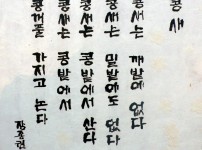 콩 새
콩새는 깨밭에 없다
콩새는 밀밭에도 없다
콩새는 콩밭에서 산다
콩새는 콩밭에서
콩꺼풀 가지고 논다
장종권